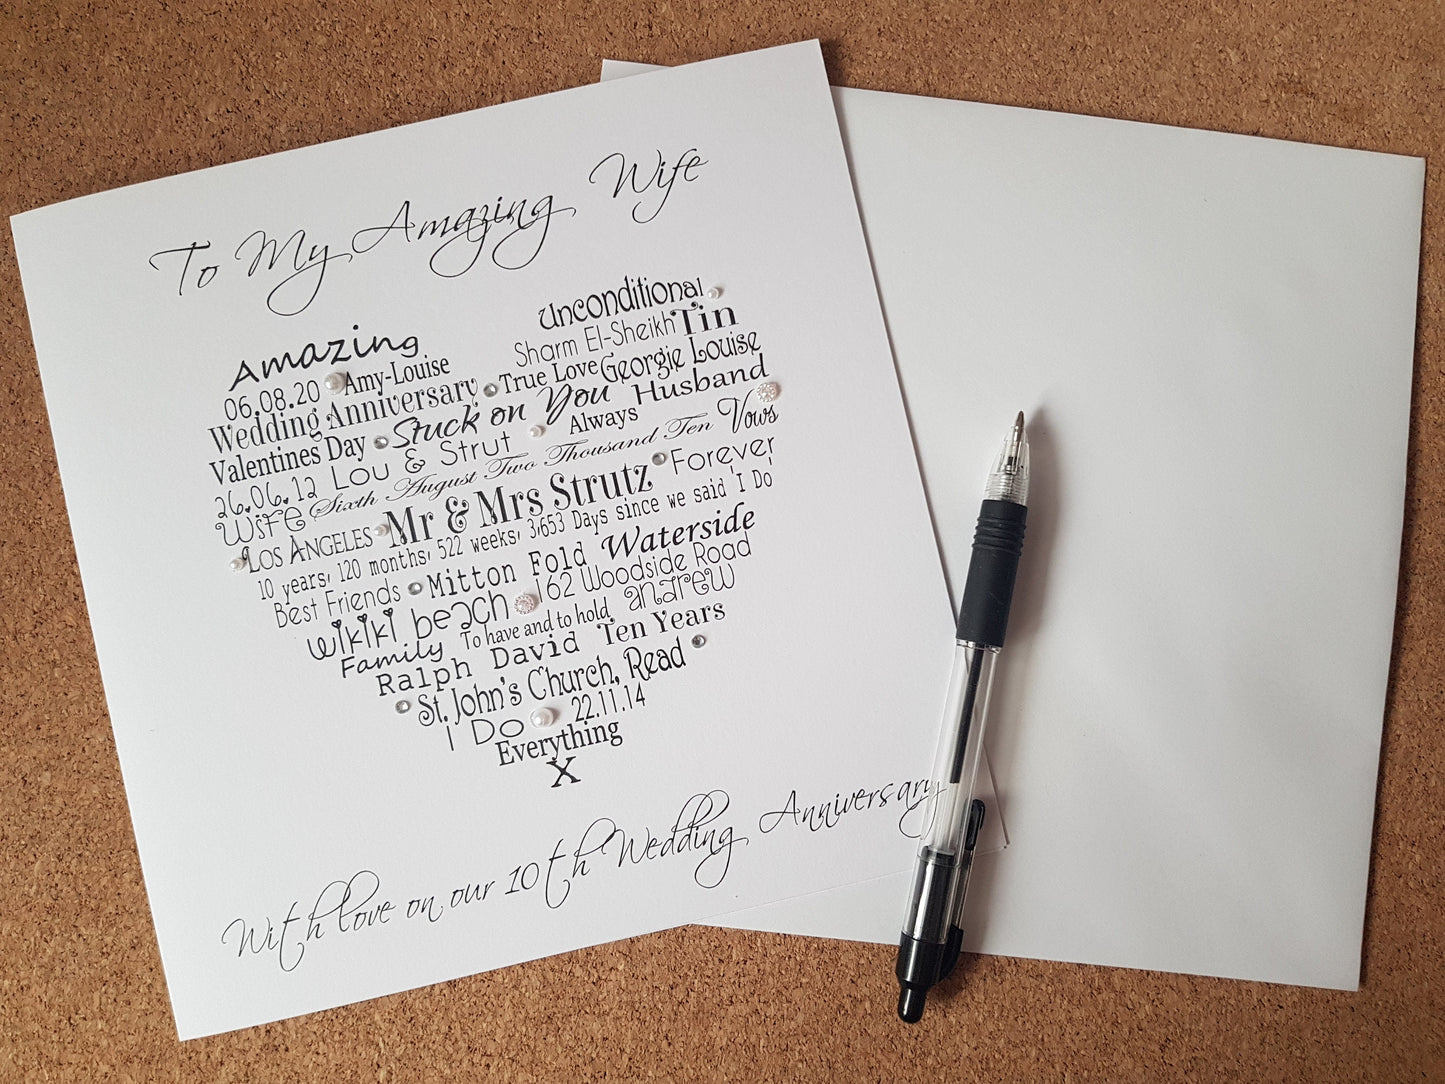 To My Amazing Wife
Amazing Unconditional
06.08.20 Amy-Louise Sharm El-Sheikh Tin
Wedding Anniversary True Love Georgie Louise
Valentines Day Stuck on You Husband
26.06.12 Lou & Strut Always Vows
Wife Sixth August Two Thousand Ten Forever
Los Angeles Mr & Mrs Strutz
10 years, 120 months, 522 weeks, 3,653 Days since we said 'I Do'
Best Friends Mitton Fold Waterside
wikiki beach 162 Woodside Road
Family To have and to hold andrew
Ralph David Ten Years
St. John's Church, Read
I Do 22.11.14
Everything
X
With love on our 10th Wedding Anniversary